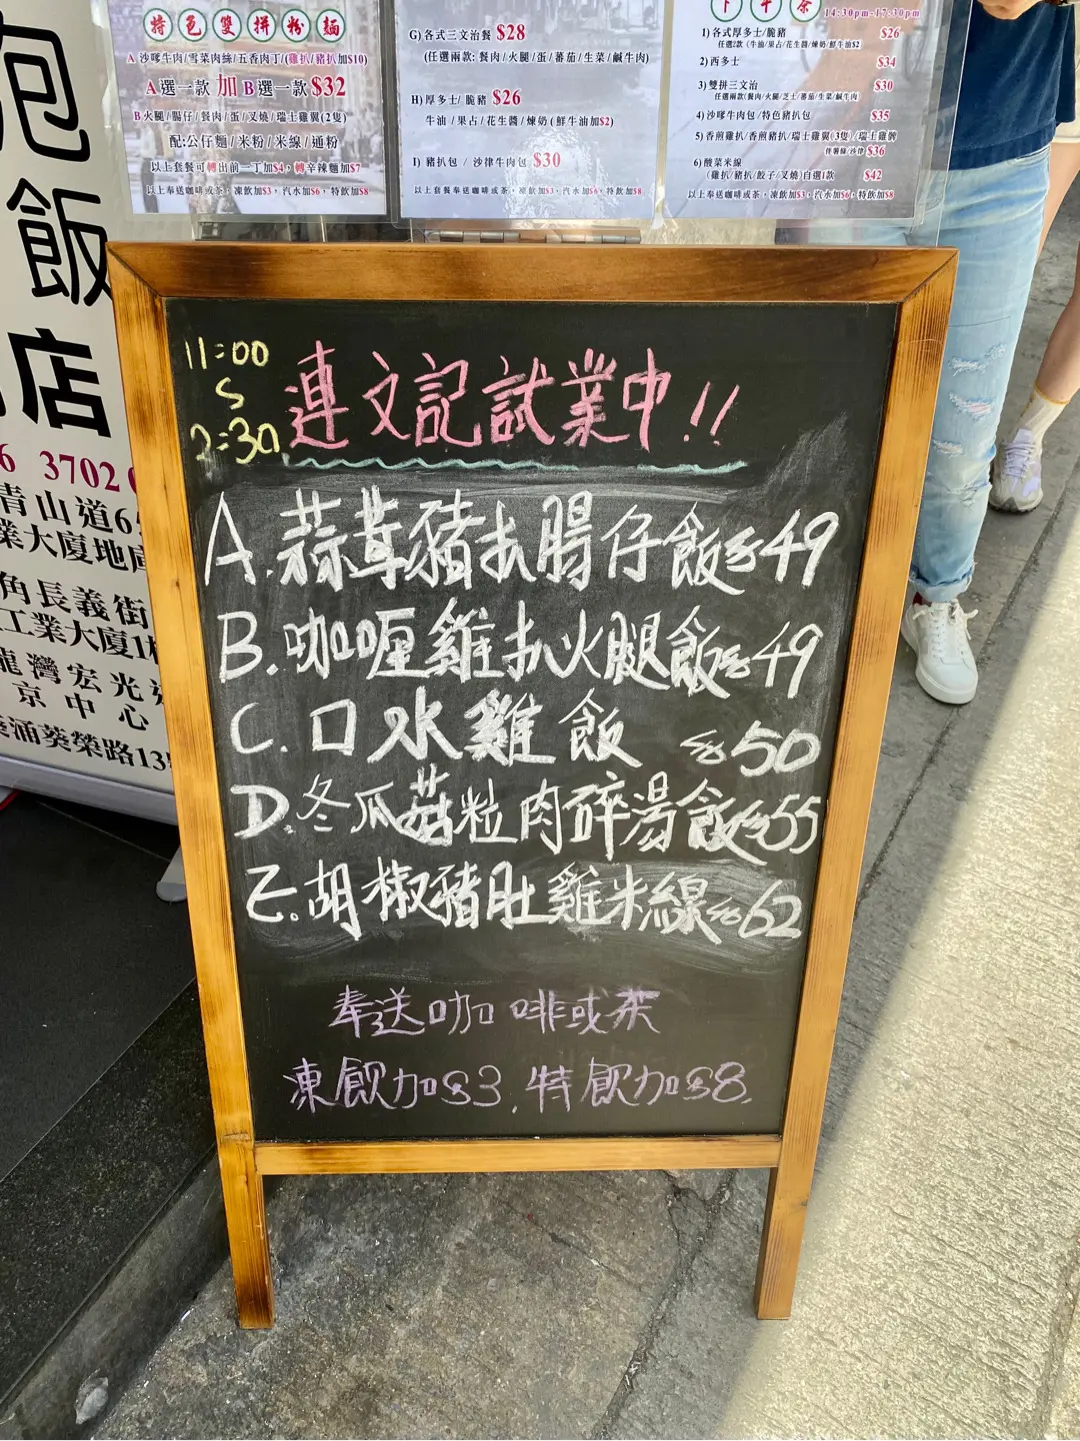 特色雙拼粉麵
A 沙嗲牛肉/雪菜肉絲/五香肉丁/(雞扒/豬扒加$10)
A選一款 加 B選一款 $32
B 火腿/腸仔/餐肉/蛋/叉燒/瑞士雞翼(2隻)
配:公仔麵/米粉/米線/通粉
以上套餐可轉出前一丁加$4,轉辛辣麵加$7
以上奉送咖啡或茶,凍飲加$3,汽水加$6,特飲加$8
G) 各式三文治餐 $28
(任選兩款: 餐肉/火腿/蛋/蕃茄/生菜/鹹牛肉)
H) 厚多士/ 脆豬 $26
牛油 /果占/花生醬/煉奶(鮮牛油加$2)
I) 豬扒包 / 沙律牛肉包 $30
以上套餐奉送咖啡或茶,凍飲加$3,汽水加$6,特飲加$8
下午茶 14:30pm-17:30pm
1) 各式厚多士/脆豬 $26
任選2款(牛油/果占/花生醬/煉奶/鮮牛油$2
2) 西多士 $34
3) 雙拼三文治 $30
任選兩款(餐肉/火腿/芝士/蕃茄/生菜/鹹牛肉
4) 沙嗲牛肉包/特色豬扒包 $35
5) 香煎雞扒/香煎豬扒/瑞士雞翼(3隻)/瑞士雞髀
伴薯條/沙律 $36
6) 酸菜米線
(雞扒/豬扒/餃子/叉燒)自選1款 $42
以上奉送咖啡或茶,凍飲加$3,汽水加$6,特飲加$8
飯
店
6 3702
青山道6
業大廈地庫
角長義街
工業大廈1
龍灣宏光
京中心
涌葵榮路13
11:00
S
2:30
連文記試業中!!
A.蒜茸豬扒腸仔飯$49
B.咖喱雞扒火腿飯$49
C.口水雞飯 $50
D.冬瓜菇粒肉碎湯飯$55
E.胡椒豬肚雞米線$62
奉送咖啡或茶
凍飲加$3,特飲加$8.